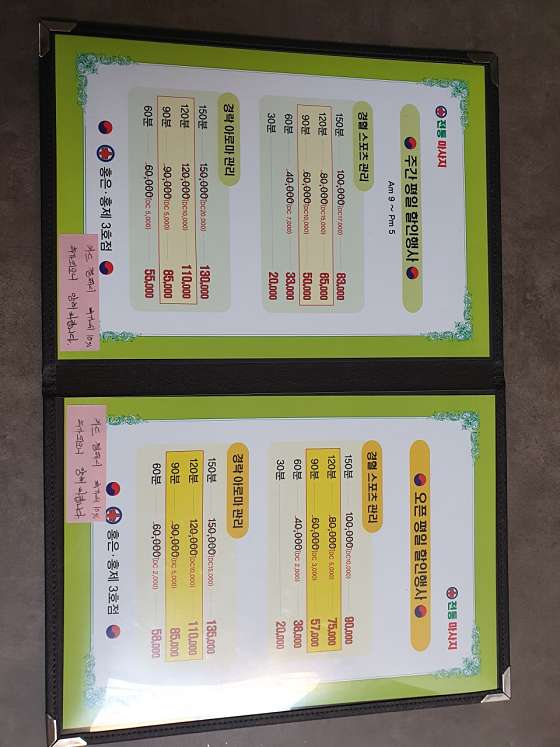 전통 마사지
주간 평일 할인행사
Am 9 ~ Pm 5
경혈 스포츠 관리
150분 100,000(DC17,000) 83,000
120분 80,000(DC15,000) 65,000
90분 60,000(DC10,000) 50,000
60분 40,000(DC 7,000) 33,000
30분 20,000
경락 아로마 관리
150분 150,000(DC20,000) 130,000
120분 120,000(DC10,000) 110,000
90분 90,000(DC 5,000) 85,000
60분 60,000(DC 5,000) 55,000
홍은·홍제 3호점
카드 결제시 부가세 10%
추가되오니 양해 바랍니다.
전통 마사지
오픈 평일 할인행사
경혈 스포츠 관리
150분 100,000(DC10,000) 90,000
120분 80,000(DC 5,000) 75,000
90분 60,000(DC 3,000) 57,000
60분 40,000(DC 2,000) 38,000
30분 20,000
경락 아로마 관리
150분 150,000(DC15,000) 135,000
120분 120,000(DC10,000) 110,000
90분 90,000(DC 5,000) 85,000
60분 60,000(DC 2,000) 58,000
홍은·홍제 3호점
카드 결제시 부가세 10%
추가되오니 양해 바랍니다.